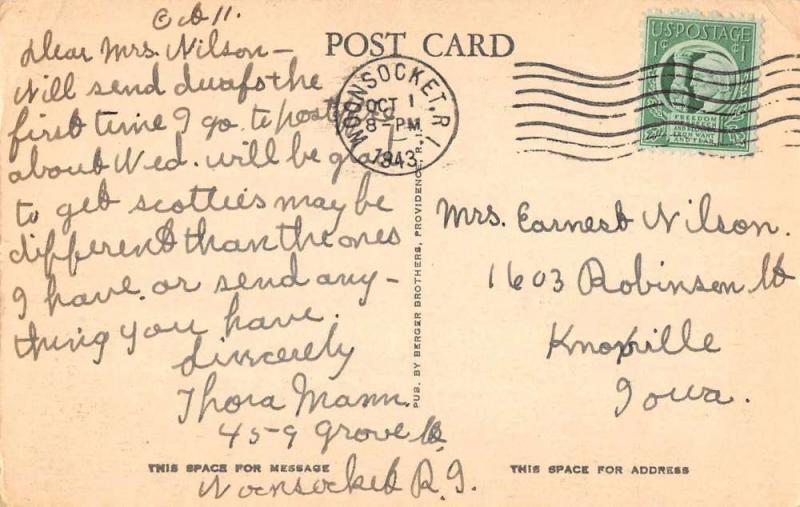 Oct 11.
Dear Mrs. Nilson—
Will send dwafs the
first time I go to post
about Wed. will be glad
to get scotties may be
different than the ones
I have. or send any-
thing you have.
Sincerely
Thora Mann.
459 Grove St
Woonsocket R.I.
THIS SPACE FOR MESSAGE
POST CARD
WOONSOCKET, R.I.
OCT 1
8-PM
1943
PUB. BY BERGER BROTHERS, PROVIDENCE, R.I.
U.S. POSTAGE
1¢ ¢1
FREEDOM
OF SPEECH
AND RELIGION
FROM WANT
AND FEAR
Mrs. Earnest Nilson.
1603 Robinson St
Knoxville
Iowa.
THIS SPACE FOR ADDRESS